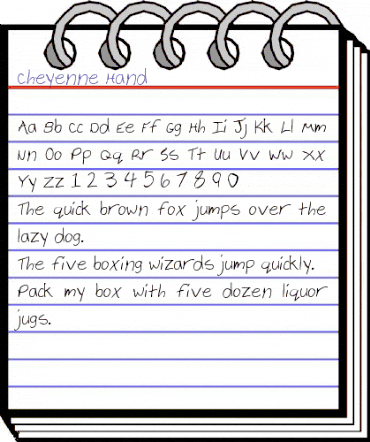 Cheyenne Hand
Aa Bb Cc Dd Ee Ff Gg Hh Ii Jj Kk Ll Mm
Nn Oo Pp Qq Rr Ss Tt Uu Vv Ww Xx
Yy Zz 1 2 3 4 5 6 7 8 9 0
The quick brown fox jumps over the
lazy dog.
The five boxing wizards jump quickly.
Pack my box with five dozen liquor
jugs.